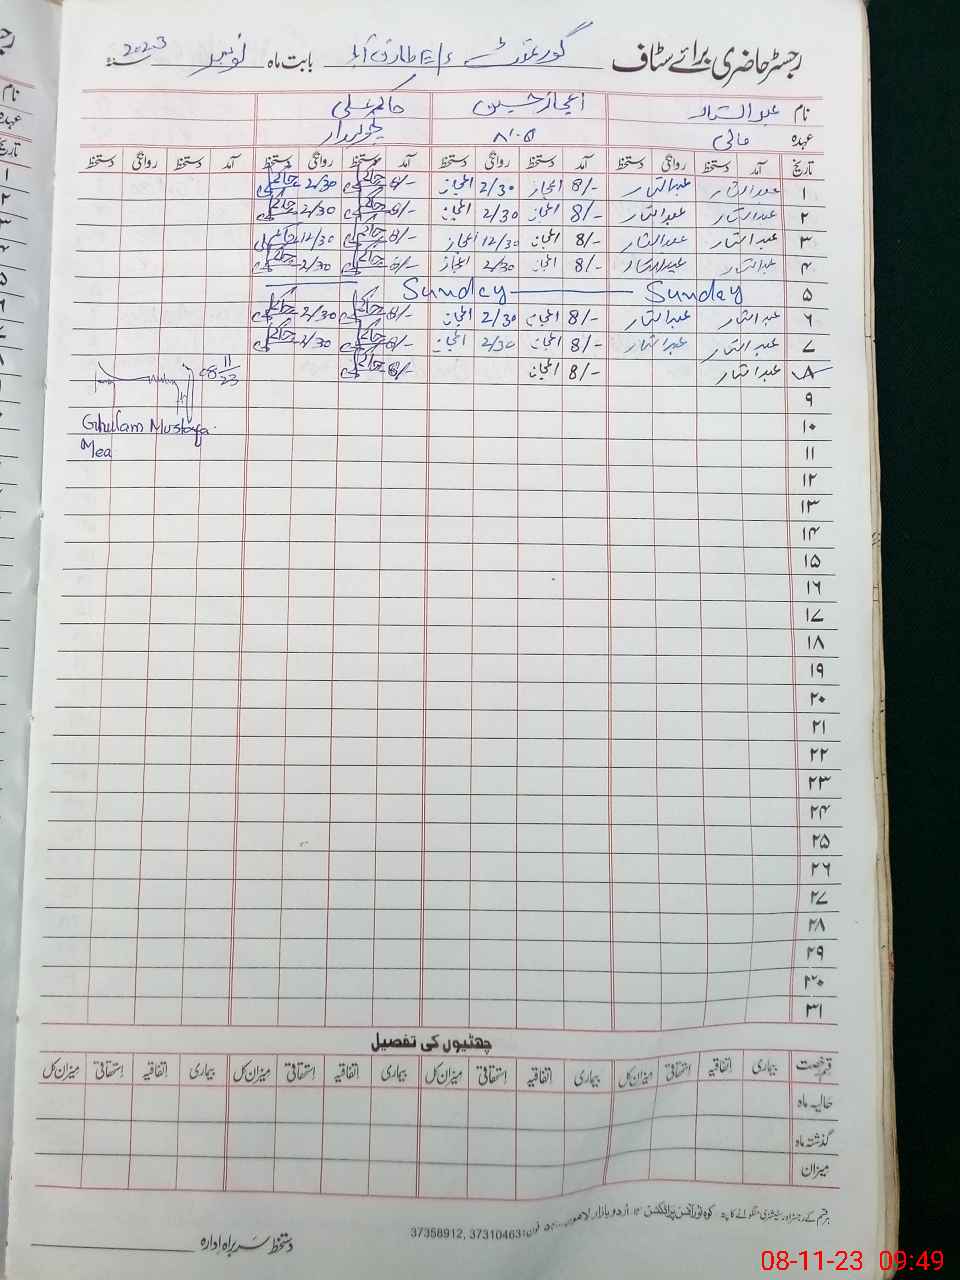 رجسٹر حاضری برائے سٹاف گورنمنٹ بابت ماہ نومبر 2023
نام عبدالستار اعجاز حسین حاکم علی
عہدہ مالی چوکیدار
تاریخ آمد دستخط روانگی دستخط آمد دستخط روانگی دستخط آمد دستخط روانگی دستخط آمد دستخط روانگی دستخط
۱ عبدالستار عبدالستار 8/- اعجاز 2/30 اعجاز 8/- حاکم علی 2/30 حاکم علی
۲ عبدالستار عبدالستار 8/- اعجاز 2/30 اعجاز 8/- حاکم علی 2/30 حاکم علی
۳ عبدالستار عبدالستار 8/- اعجاز 12/30 اعجاز 8/- حاکم علی 12/30 حاکم علی
۴ عبدالستار عبدالستار 8/- اعجاز 2/30 اعجاز 8/- حاکم علی 2/30 حاکم علی
۵ Sunday Sunday
۶ عبدالستار عبدالستار 8/- اعجاز 2/30 اعجاز 8/- حاکم علی 2/30 حاکم علی
۷ عبدالستار عبدالستار 8/- اعجاز 2/30 اعجاز 8/- حاکم علی 2/30 حاکم علی
۸ عبدالستار 8/- اعجاز 8/- حاکم علی 08/11/23
۹
۱۰ Ghulam Mustafa
۱۱ Mea
۱۲
۱۳
۱۴
۱۵
۱۶
۱۷
۱۸
۱۹
۲۰
۲۱
۲۲
۲۳
۲۴
۲۵
۲۶
۲۷
۲۸
۲۹
۳۰
۳۱
چھٹیوں کی تفصیل
قسم رخصت بیماری اتفاقیہ استحقاقی میزان کل بیماری اتفاقیہ استحقاقی میزان کل بیماری اتفاقیہ استحقاقی میزان کل بیماری اتفاقیہ استحقاقی میزان کل
حالیہ ماہ
گذشتہ ماہ
میزان
ہر قسم کے رجسٹر اور سٹیشنری منگوانے کا پتہ اردو بازار لاہور فون: 37358912, 37310463
دستخط سربراہ ادارہ
08-11-23 09:49